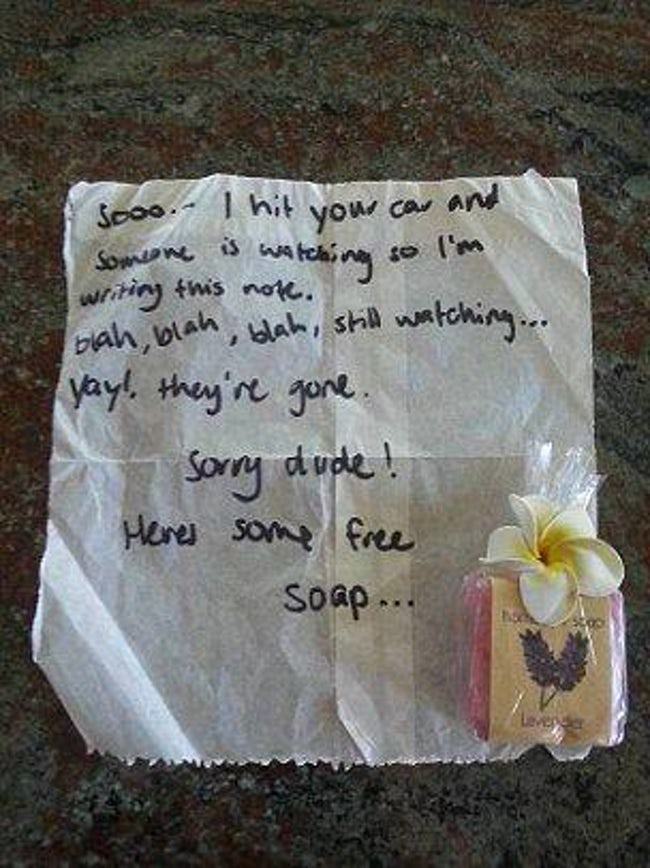 Sooo.- I hit your car and
Someone is watching so I'm
writing this note.
blah, blah, blah, still watching...
Yay!. they're gone.
Sorry dude!
Heres some free
soap...
soap
Lavender